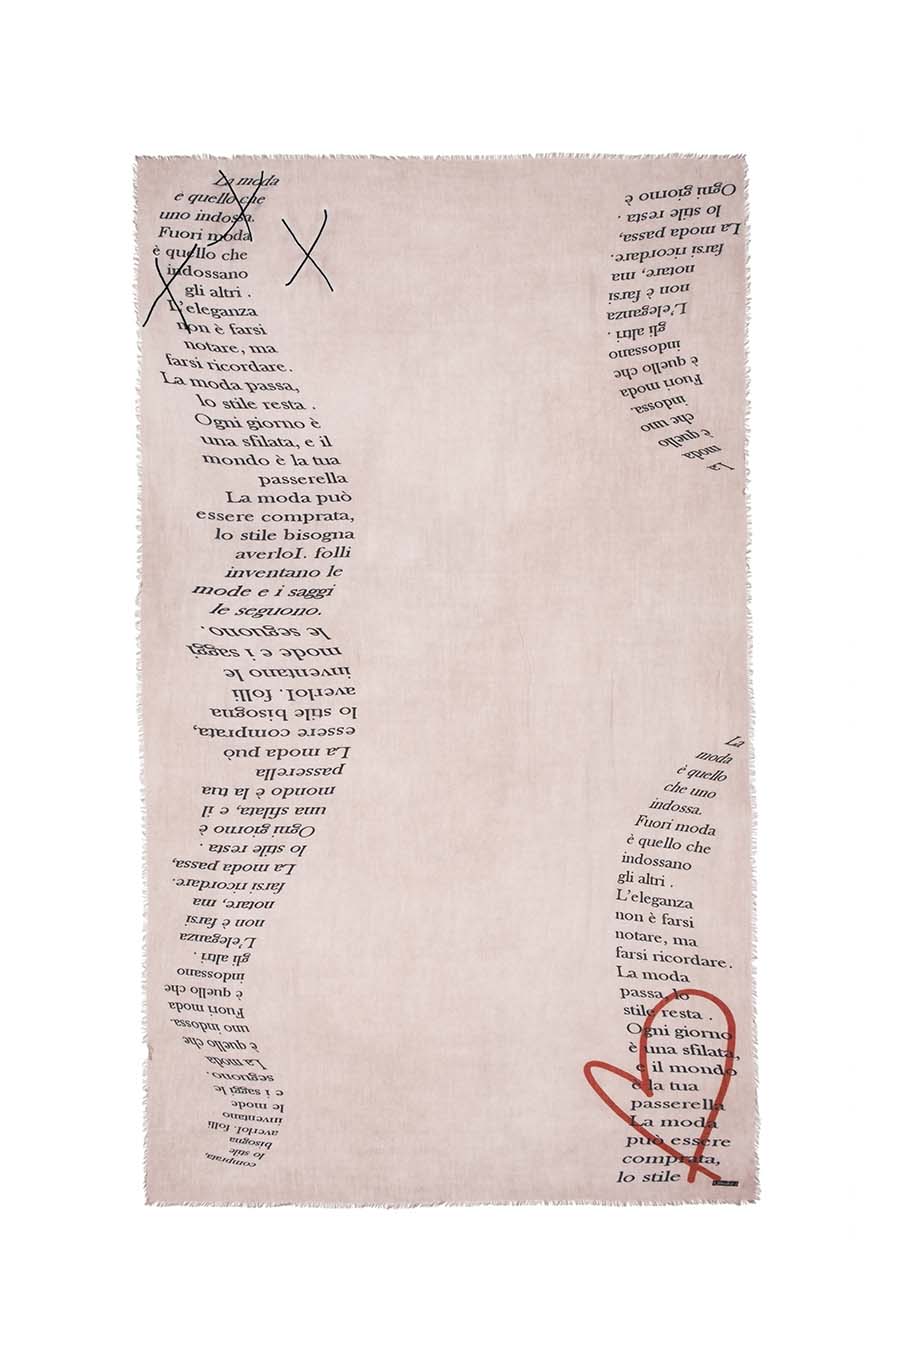 La moda
e quello che
uno indossa.
Fuori moda
è quello che
indossano
gli altri .
L'eleganza
non è farsi
notare, ma
farsi ricordare.
La moda passa,
lo stile resta .
Ogni giorno è
una sfilata, e il
mondo è la tua
passerella
La moda può
essere comprata,
lo stile bisogna
averloI. folli
inventano le
mode e i saggi
le seguono.
comprata,
lo stile
bisogna
averloI. folli
inventano
le mode
e i saggi le
seguono.
La moda
è quello che
uno indossa.
Fuori moda
è quello che
indossano
gli altri .
L'eleganza
non è farsi
notare, ma
farsi ricordare.
La moda passa,
lo stile resta .
Ogni giorno è
una sfilata, e il
mondo è la tua
passerella
La moda può
essere comprata,
lo stile bisogna
averloI. folli
inventano le
mode e i saggi
le seguono.
La
moda
è quello
che uno
indossa.
Fuori moda
è quello che
indossano
gli altri .
L'eleganza
non è farsi
notare, ma
farsi ricordare.
La moda passa,
lo stile resta .
Ogni giorno è
La
moda
è quello
che uno
indossa.
Fuori moda
è quello che
indossano
gli altri .
L'eleganza
non è farsi
notare, ma
farsi ricordare.
La moda
passa, lo
stile resta .
Ogni giorno
è una sfilata,
e il mondo
è la tua
passerella
La moda
può essere
comprata,
lo stile